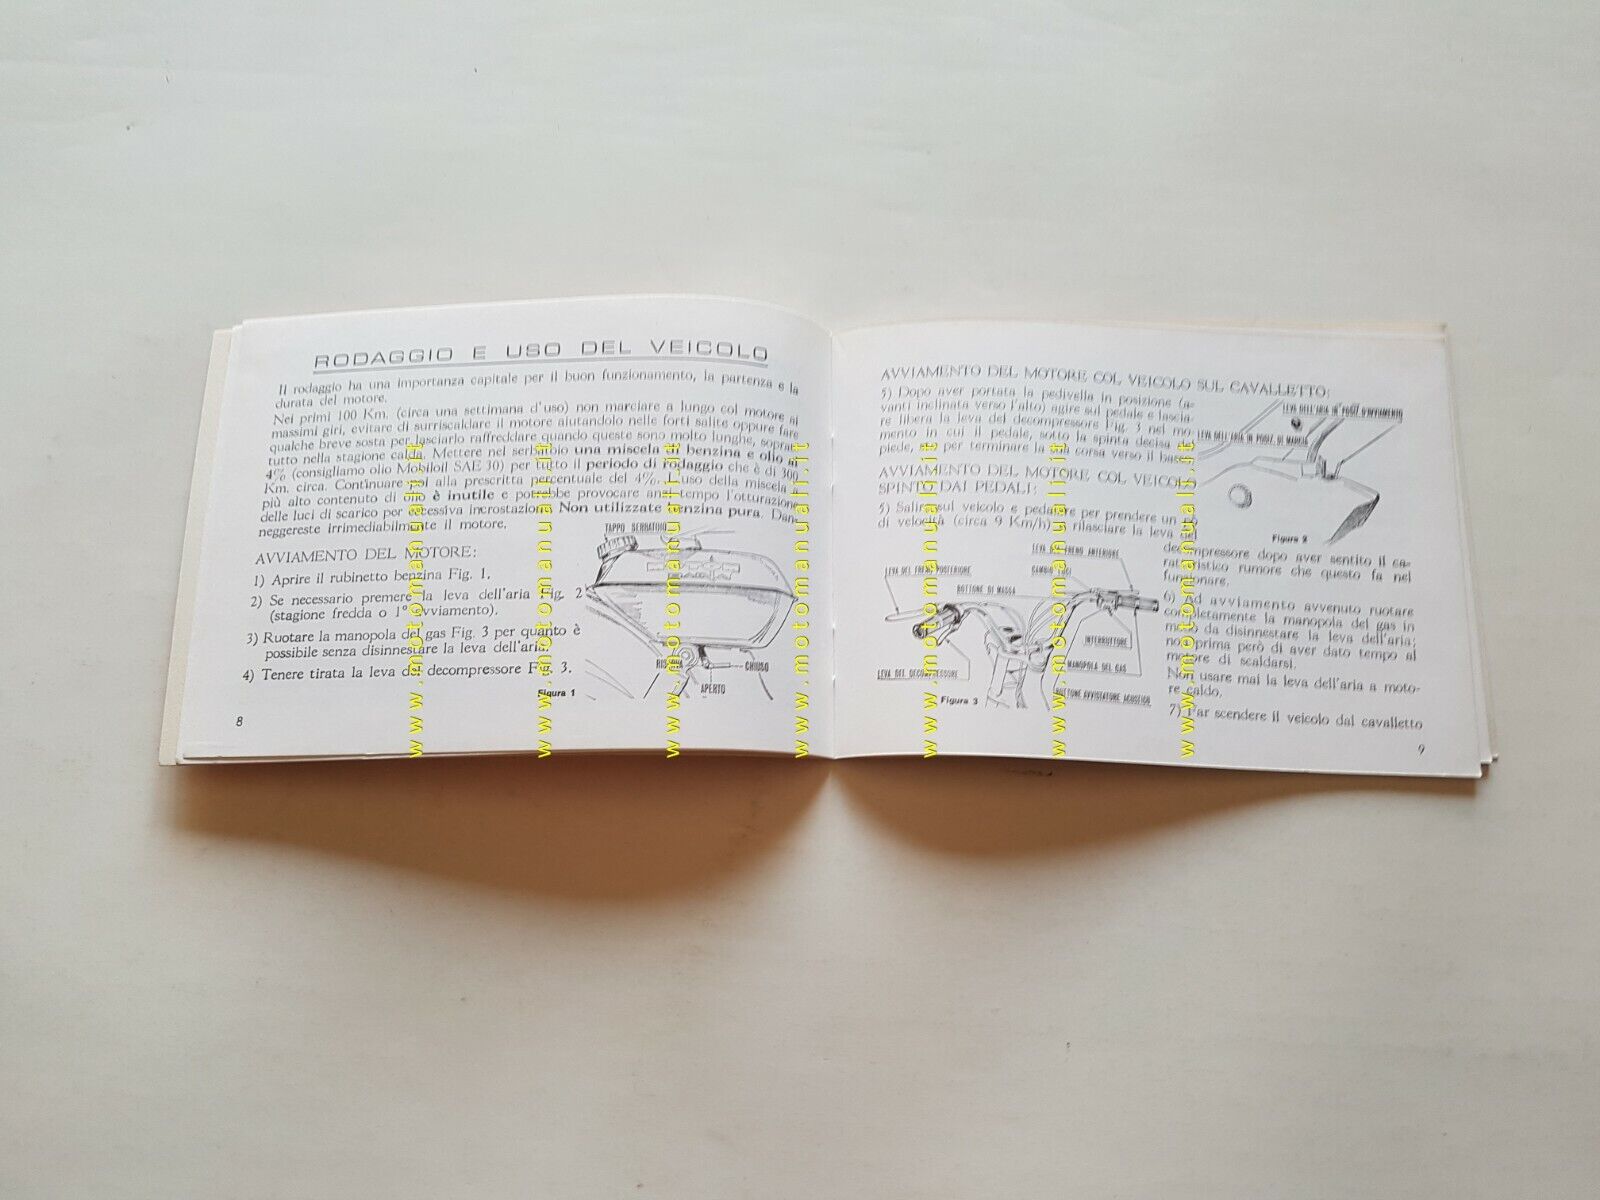 RODAGGIO E USO DEL VEICOLO
Il rodaggio ha una importanza capitale per il buon funzionamento, la partenza e la
durata del motore.
Nei primi 100 Km. (circa una settimana d'uso) non marciare a lungo col motore ai
massimi giri, evitare di surriscaldare il motore aiutandolo nelle forti salite oppure fare
qualche breve sosta per lasciarlo raffreddare quando queste sono molto lunghe, soprat-
tutto nella stagione calda. Mettere nel serbatoio una miscela di benzina e olio al
4% (consigliamo olio Mobiloil SAE 30) per tutto il periodo di rodaggio che è di 300
Km. circa. Continuare poi alla prescritta percentuale del 4%. L'uso della miscela a
più alto contenuto di olio è inutile e potrebbe provocare anzi tempo l'otturazione
delle luci di scarico per eccessiva incrostazione. Non utilizzate benzina pura. Dan-
neggereste irrimediabilmente il motore.
AVVIAMENTO DEL MOTORE:
1) Aprire il rubinetto benzina Fig. 1.
2) Se necessario premere la leva dell'aria Fig. 2
(stagione fredda o 1° avviamento).
3) Ruotare la manopola del gas Fig. 3 per quanto è
possibile senza disinnestare la leva dell'aria.
4) Tenere tirata la leva del decompressore Fig. 3.
TAPPO SERBATOIO
RISERVA
CHIUSO
APERTO
Figura 1
8
AVVIAMENTO DEL MOTORE COL VEICOLO SUL CAVALLETTO:
5) Dopo aver portata la pedivella in posizione (a-
vanti inclinata verso l'alto) agire sul pedale e lascia-
re libera la leva del decompressore Fig. 3 nel mo-
mento in cui il pedale, sotto la spinta decisa del
piede, sta per terminare la sua corsa verso il basso.
AVVIAMENTO DEL MOTORE COL VEICOLO
SPINTO DAI PEDALI:
5) Salire sul veicolo e pedalare per prendere un pò
di velocità (circa 9 Km/h) e rilasciare la leva del
decompressore dopo aver sentito il ca-
ratteristico rumore che questo fa nel
funzionare.
6) Ad avviamento avvenuto ruotare
completamente la manopola del gas in
modo da disinnestare la leva dell'aria;
non prima però di aver dato tempo al
motore di scaldarsi.
Non usare mai la leva dell'aria a moto-
re caldo.
7) Far scendere il veicolo dal cavalletto
LEVA DELL'ARIA IN POSIZ. D'AVVIAMENTO
LEVA DELL'ARIA IN POSIZ. DI MARCIA
Figura 2
LEVA DEL FRENO ANTERIORE
CAMBIO LUCI
LEVA DEL FRENO POSTERIORE
BOTTONE DI MASSA
INTERRUTTORE
MANOPOLA DEL GAS
LEVA DEL DECOMPRESSORE
BOTTONE AVVISATORE ACUSTICO
Figura 3
9
www.motomanuali.it
www.motomanuali.it
www.motomanuali.it
www.motomanuali.it
www.motomanuali.it
www.motomanuali.it
www.motomanuali.it